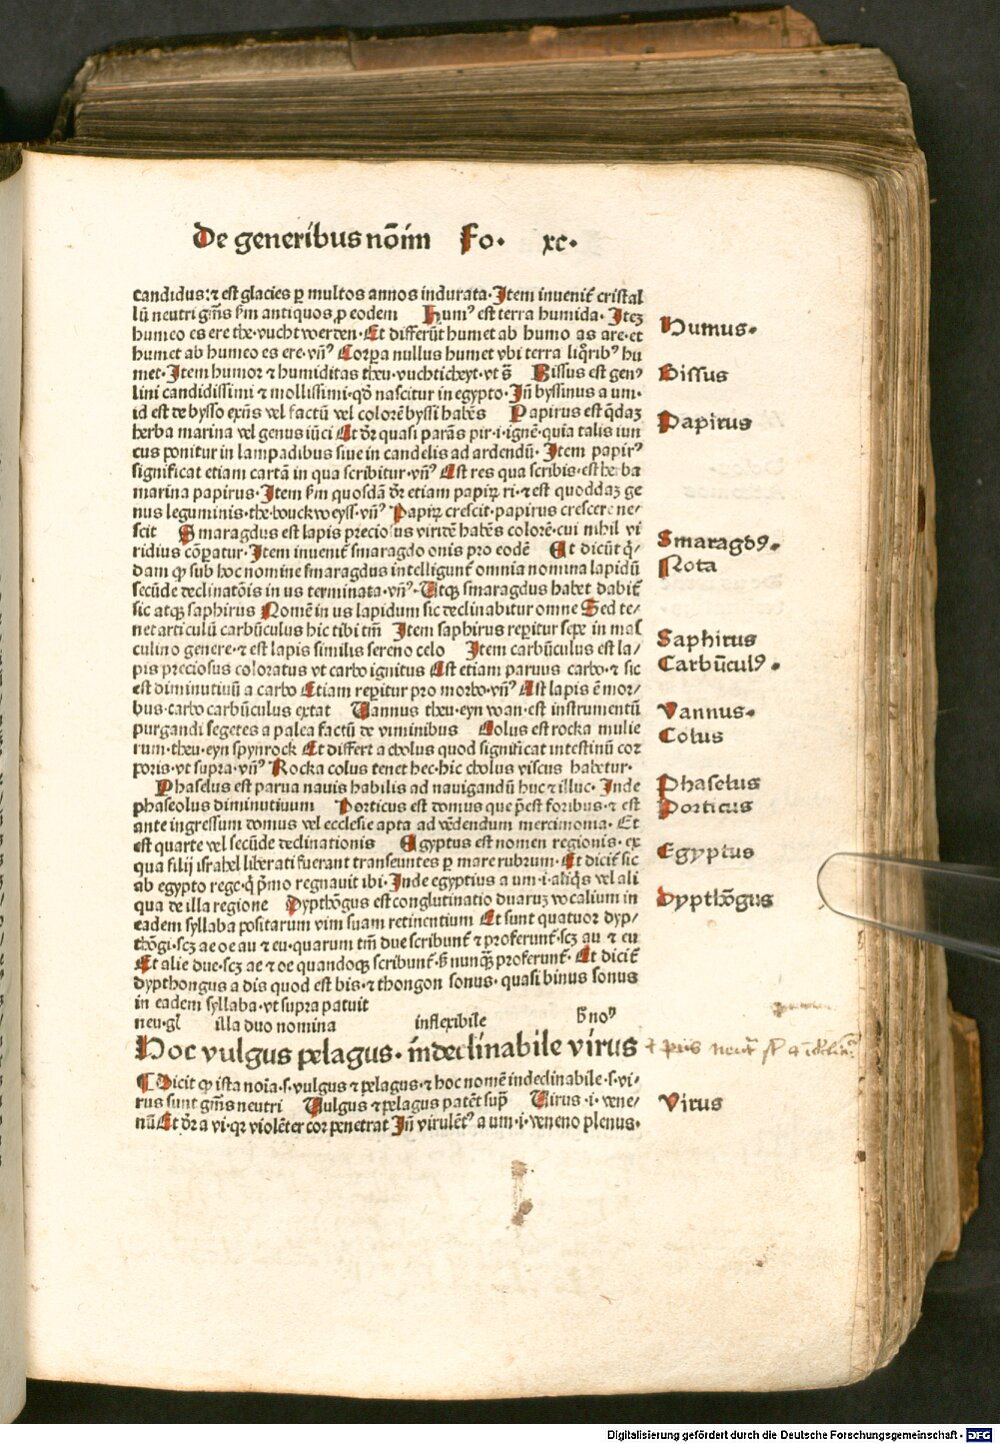 De generibus nōim Fo. xc.
candidus: ⁊ est glacies ꝑ multos annos indurata. Item invenit̄ cristal
lū neutri gn̄is ẜm antiquos ꝓ eodem Humꝰ est terra humida. Iteꝫ
humeo es ere the. vucht werden. Et differūt humet ab humo as are. et
humet ab humeo es ere. vn̄ꝰ Corꝑa nullus humet vbi terra liq̄ribꝰ hu
met. Item humor ⁊ humiditas theu. vuchticheyt. vt s̄ Bissus est genꝰ
lini candidissimi ⁊ mollissimi. qd̄ nascitur in egypto. In̄ byssinus a um.
id est de bysso exn̄s vel factū vel colorē byssi habēs Papirus est q̄daꝫ
herba marina vel genus iūci Et dr̄ quasi parās pir. i. ignē. quia talis iun
cus ponitur in lampadibus siue in candelis ad ardendū. Item papirꝰ
significat etiam cartā in qua scribitur. vn̄ꝰ Est res qua scribis. est herba
marina papirus. Item ẜm quosdā dr̄ etiam papiꝝ ri. ⁊ est quoddaꝫ ge
nus leguminis. the. bouckweyss. vn̄ꝰ Papiꝝ crescit. papirus crescere ne-
scit Smaragdus est lapis preciosus viridē habēs colorē. cui nihil vi
ridius cōꝑatur. Item invenit̄ smaragdo onis pro eodē Et dicūt q̄-
dam ꝙ sub hoc nomine smaragdus intelligunt̄ omnia nomina lapidū
secūde declinatōis in us terminata. vn̄ꝰ. Utqꝫ smaragdus habet dabit̄
sic atqꝫ saphirus Nomē in us lapidum sic declinabitur omne Sed te-
net articulū carbūculus hic tibi tm̄ Item saphirus reꝑitur sepe in mas
culino genere. ⁊ est lapis similis sereno celo Item carbūculus est la-
pis preciosus coloratus vt carbo ignitus Est etiam paruus carbo. ⁊ sic
est diminutiuū a carbo Etiam reꝑitur pro morbo. vn̄ꝰ Est lapis ē mor-
bus. carbo carbūculus extat Vannus theu. eyn wan. est instrumentū
purgandi segetes a palea factū de viminibus Colus est rocka mulie
rum. theu. eyn spynrock Et differt a cholus quod significat intestinū cor
poris. vt supra. vn̄ꝰ Rocka colus tenet hec. hic cholus viscus habetur.
Phaselus est parua nauis habilis ad nauigandū huc ⁊ illuc. Inde
phaseolus diminutiuum Porticus est domus que p̄est foribus. ⁊ est
ante ingressum domus vel ecclesie apta ad vēdendum mercimonia. Et
est quarte vel secūde declinationis Egyptus est nomen regionis. ex
qua filij israhel liberati fuerant transeuntes ꝑ mare rubrum. Et dicit̄ sic
ab egypto rege. q̄ p̄mo regnauit ibi. Inde egyptius a um. i. aliq̄s vel ali
qua de illa regione Dypthōgus est conglutinatio duaruꝫ vocalium in
eadem syllaba positarum vim suam retinentium Et sunt quatuor dyp-
thōgi. scꝫ ae oe au ⁊ eu. quarum tm̄ due scribunt̄ ⁊ proferunt̄. scꝫ au ⁊ eu
Et alie due. scꝫ ae ⁊ oe quandoqꝫ scribunt̄. ẜ nunq̄ꝫ proferunt̄. Et dicit̄
dypthongus a dis quod est bis. ⁊ thongon sonus. quasi binus sonus
in eadem syllaba. vt supra patuit
neu. gl̄ illa duo nomina inflexibile h̄ noꝰ
Hoc vulgus pelagus. indeclinabile virus
Dicit ꝙ ista noīa. s. vulgus ⁊ pelagus. ⁊ hoc nomē indeclinabile. s. vi-
rus sunt gn̄is neutri Vulgus ⁊ pelagus patēt sup̄ Virus. i. vene-
nū Et dr̄ a vi. qꝛ violēter cor penetrat In̄ virulētꝰ a um. i. veneno plenus.
Humus.
Bissus
Papirus
Smaragdꝰ.
Nota
Saphirus
Carbūculꝰ.
Vannus.
Colus
Phaselus
Porticus
Egyptus
Dypthōgus
Virus
Digitalisierung gefördert durch die Deutsche Forschungsgemeinschaft - DFG